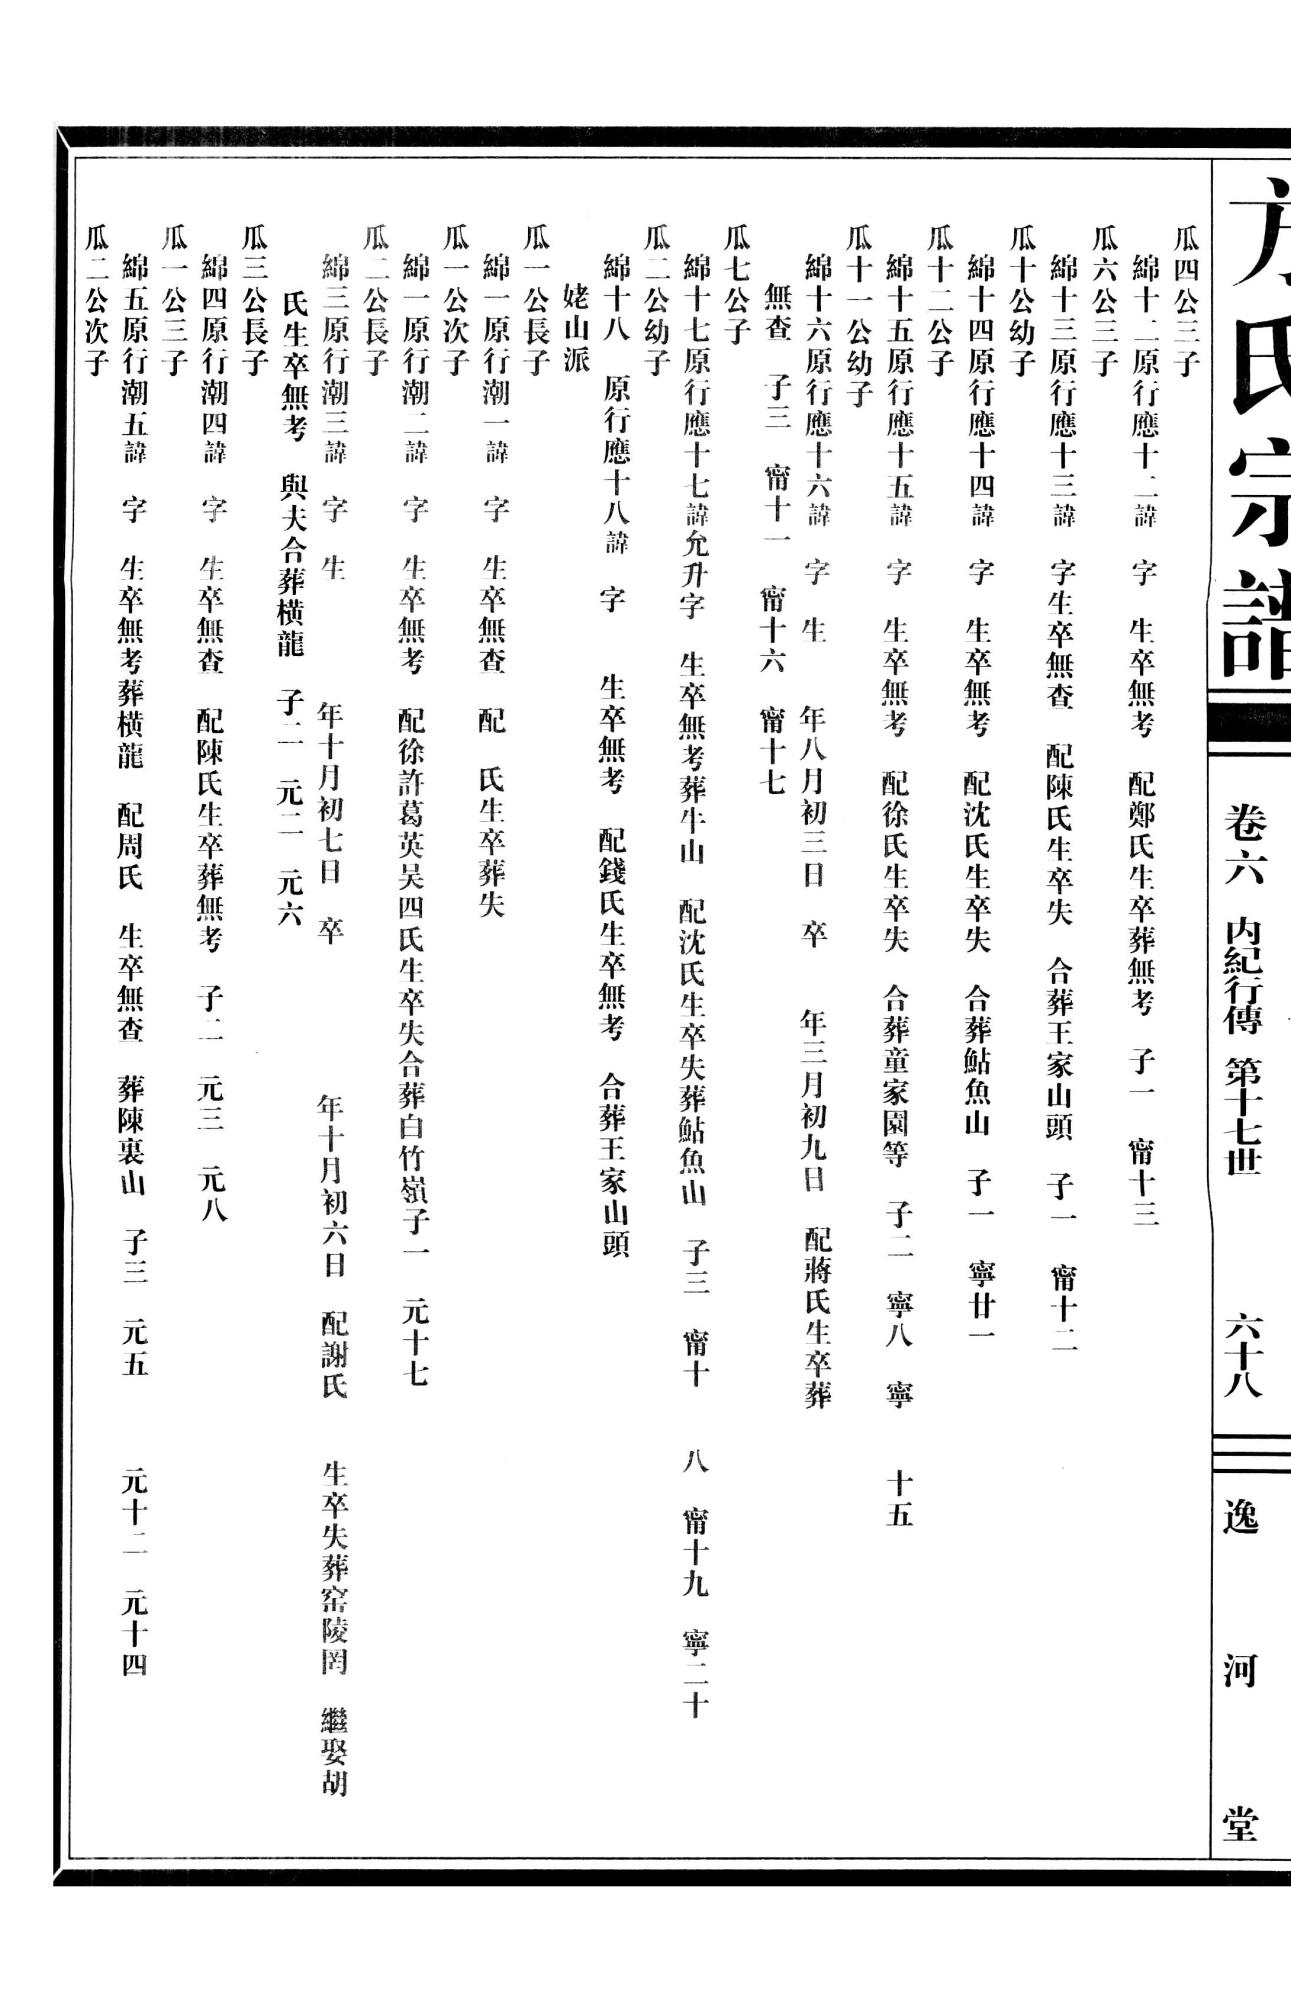 方氏宗譜
卷六 内紀行傳 第十七世 六十八
逸河堂
瓜四公三子
綿十二原行應十二諱 字 生卒無考 配鄭氏生卒葬無考 子一 甯十三
瓜六公三子
綿十三原行應十三諱 字生卒無查 配陳氏生卒失 合葬王家山頭 子一 甯十二
瓜十公幼子
綿十四原行應十四諱 字 生卒無考 配沈氏生卒失 合葬鮎魚山 子一 寧廿一
瓜十二公子
綿十五原行應十五諱 字 生卒無考 配徐氏生卒失 合葬童家園等 子二 寧八 寧 十五
瓜十一公幼子
綿十六原行應十六諱 字 生 年八月初三日 卒 年三月初九日 配蔣氏生卒葬
無查 子三 甯十一 甯十六 甯十七
瓜七公子
綿十七原行應十七諱允升字 生卒無考葬牛山 配沈氏生卒失葬鮎魚山 子三 甯十 八 甯十九 寧二十
瓜二公幼子
綿十八 原行應十八諱 字 生卒無考 配錢氏生卒無考 合葬王家山頭
姥山派
瓜一公長子
綿一原行潮一諱 字 生卒無查 配 氏生卒葬失
瓜一公次子
綿一原行潮二諱 字 生卒無考 配徐許葛英吴四氏生卒失合葬白竹嶺子一 元十七
瓜二公長子
綿三原行潮三諱 字 生 年十月初七日 卒 年十月初六日 配謝氏 生卒失葬窑陵罔 繼娶胡
氏生卒無考 與夫合葬橫龍 子二 元二 元六
瓜三公長子
綿四原行潮四諱 字 生卒無查 配陳氏生卒葬無考 子二 元三 元八
瓜一公三子
綿五原行潮五諱 字 生卒無考葬橫龍 配周氏 生卒無查 葬陳裏山 子三 元五 元十二 元十四
瓜二公次子